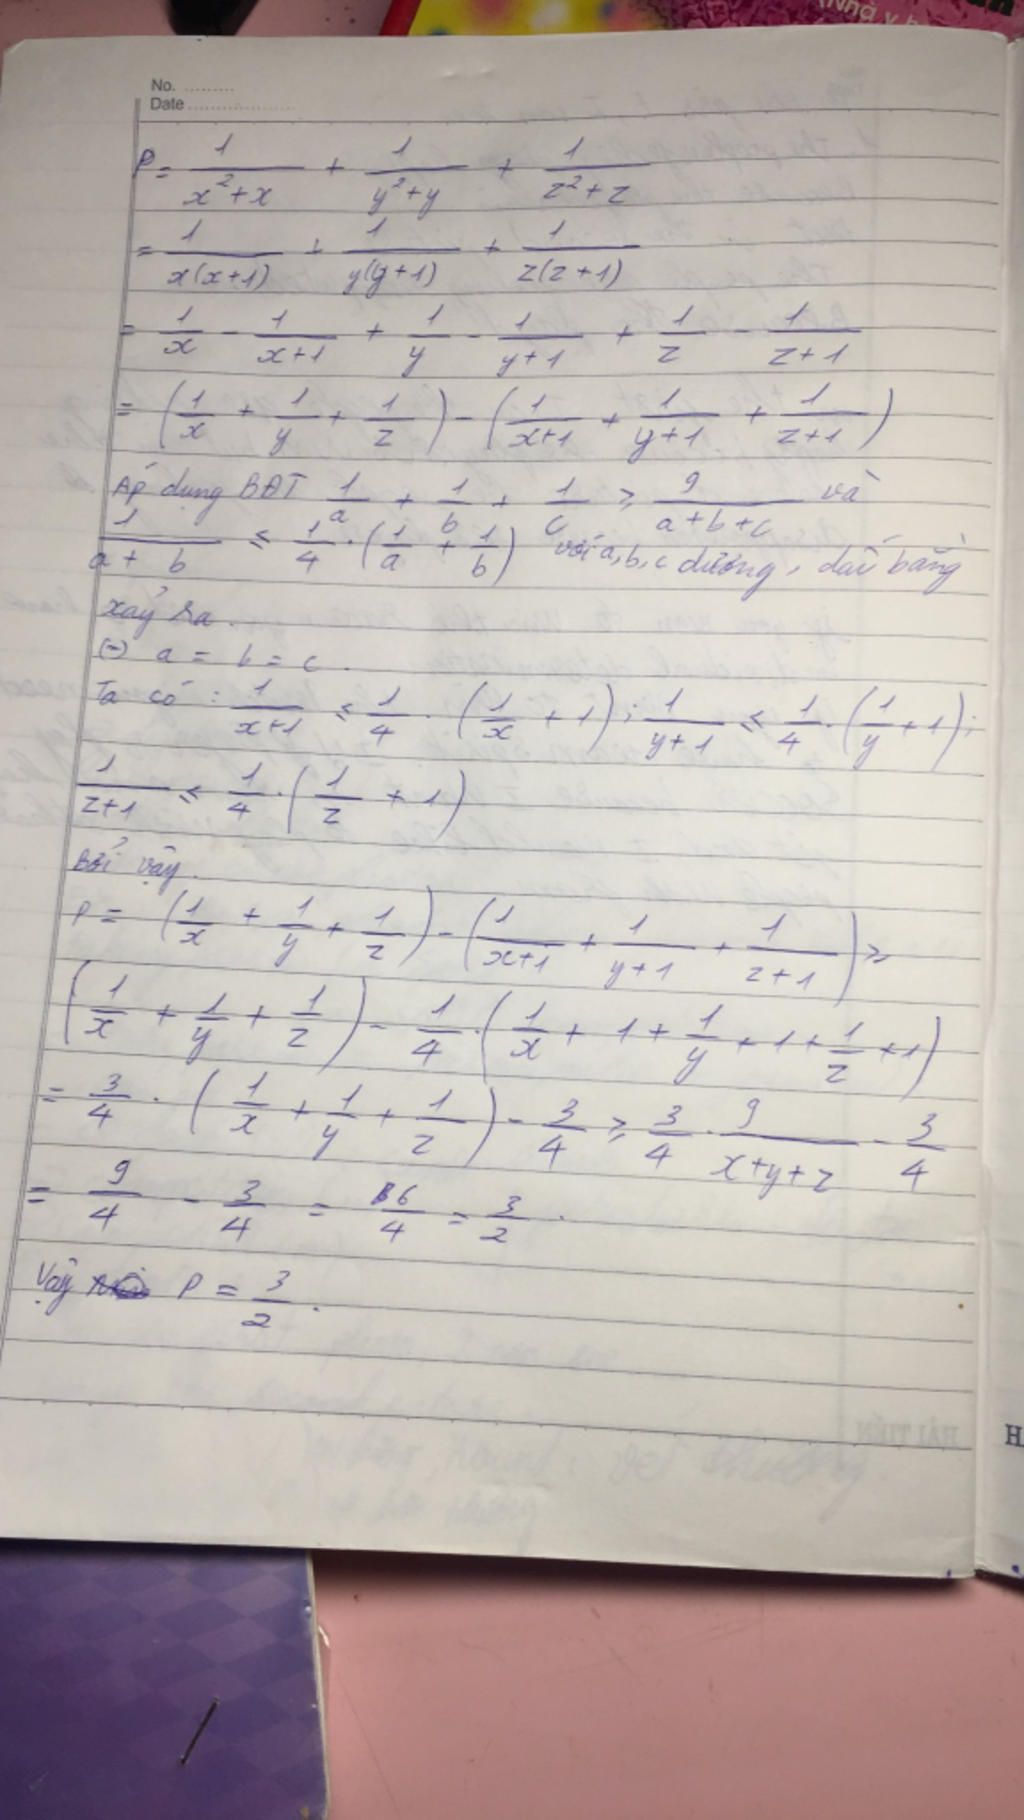 (Nhà
No. ..........
Date ....................
P = 1/(x²+x) + 1/(y²+y) + 1/(z²+z)
= 1/(x(x+1)) + 1/(y(y+1)) + 1/(z(z+1))
= 1/x - 1/(x+1) + 1/y - 1/(y+1) + 1/z - 1/(z+1)
= (1/x + 1/y + 1/z) - (1/(x+1) + 1/(y+1) + 1/(z+1))
Áp dụng BĐT 1/a + 1/b + 1/c ≥ 9/(a+b+c) và
1/(a+b) ≤ 1/4 . (1/a + 1/b) với a, b, c dương, dấu bằng
xảy ra.
(=) a = b = c.
Ta có : 1/(x+1) ≤ 1/4 . (1/x + 1) ; 1/(y+1) ≤ 1/4 . (1/y + 1) ;
1/(z+1) ≤ 1/4 . (1/z + 1)
Bởi vậy.
P = (1/x + 1/y + 1/z) - (1/(x+1) + 1/(y+1) + 1/(z+1)) ≥
(1/x + 1/y + 1/z) - 1/4 . (1/x + 1 + 1/y + 1 + 1/z + 1)
= 3/4 . (1/x + 1/y + 1/z) - 3/4 ≥ 3/4 . 9/(x+y+z) - 3/4
= 9/4 - 3/4 = 6/4 = 3/2 .
Vậy P = 3/2 .
HẢI TIẾN
H